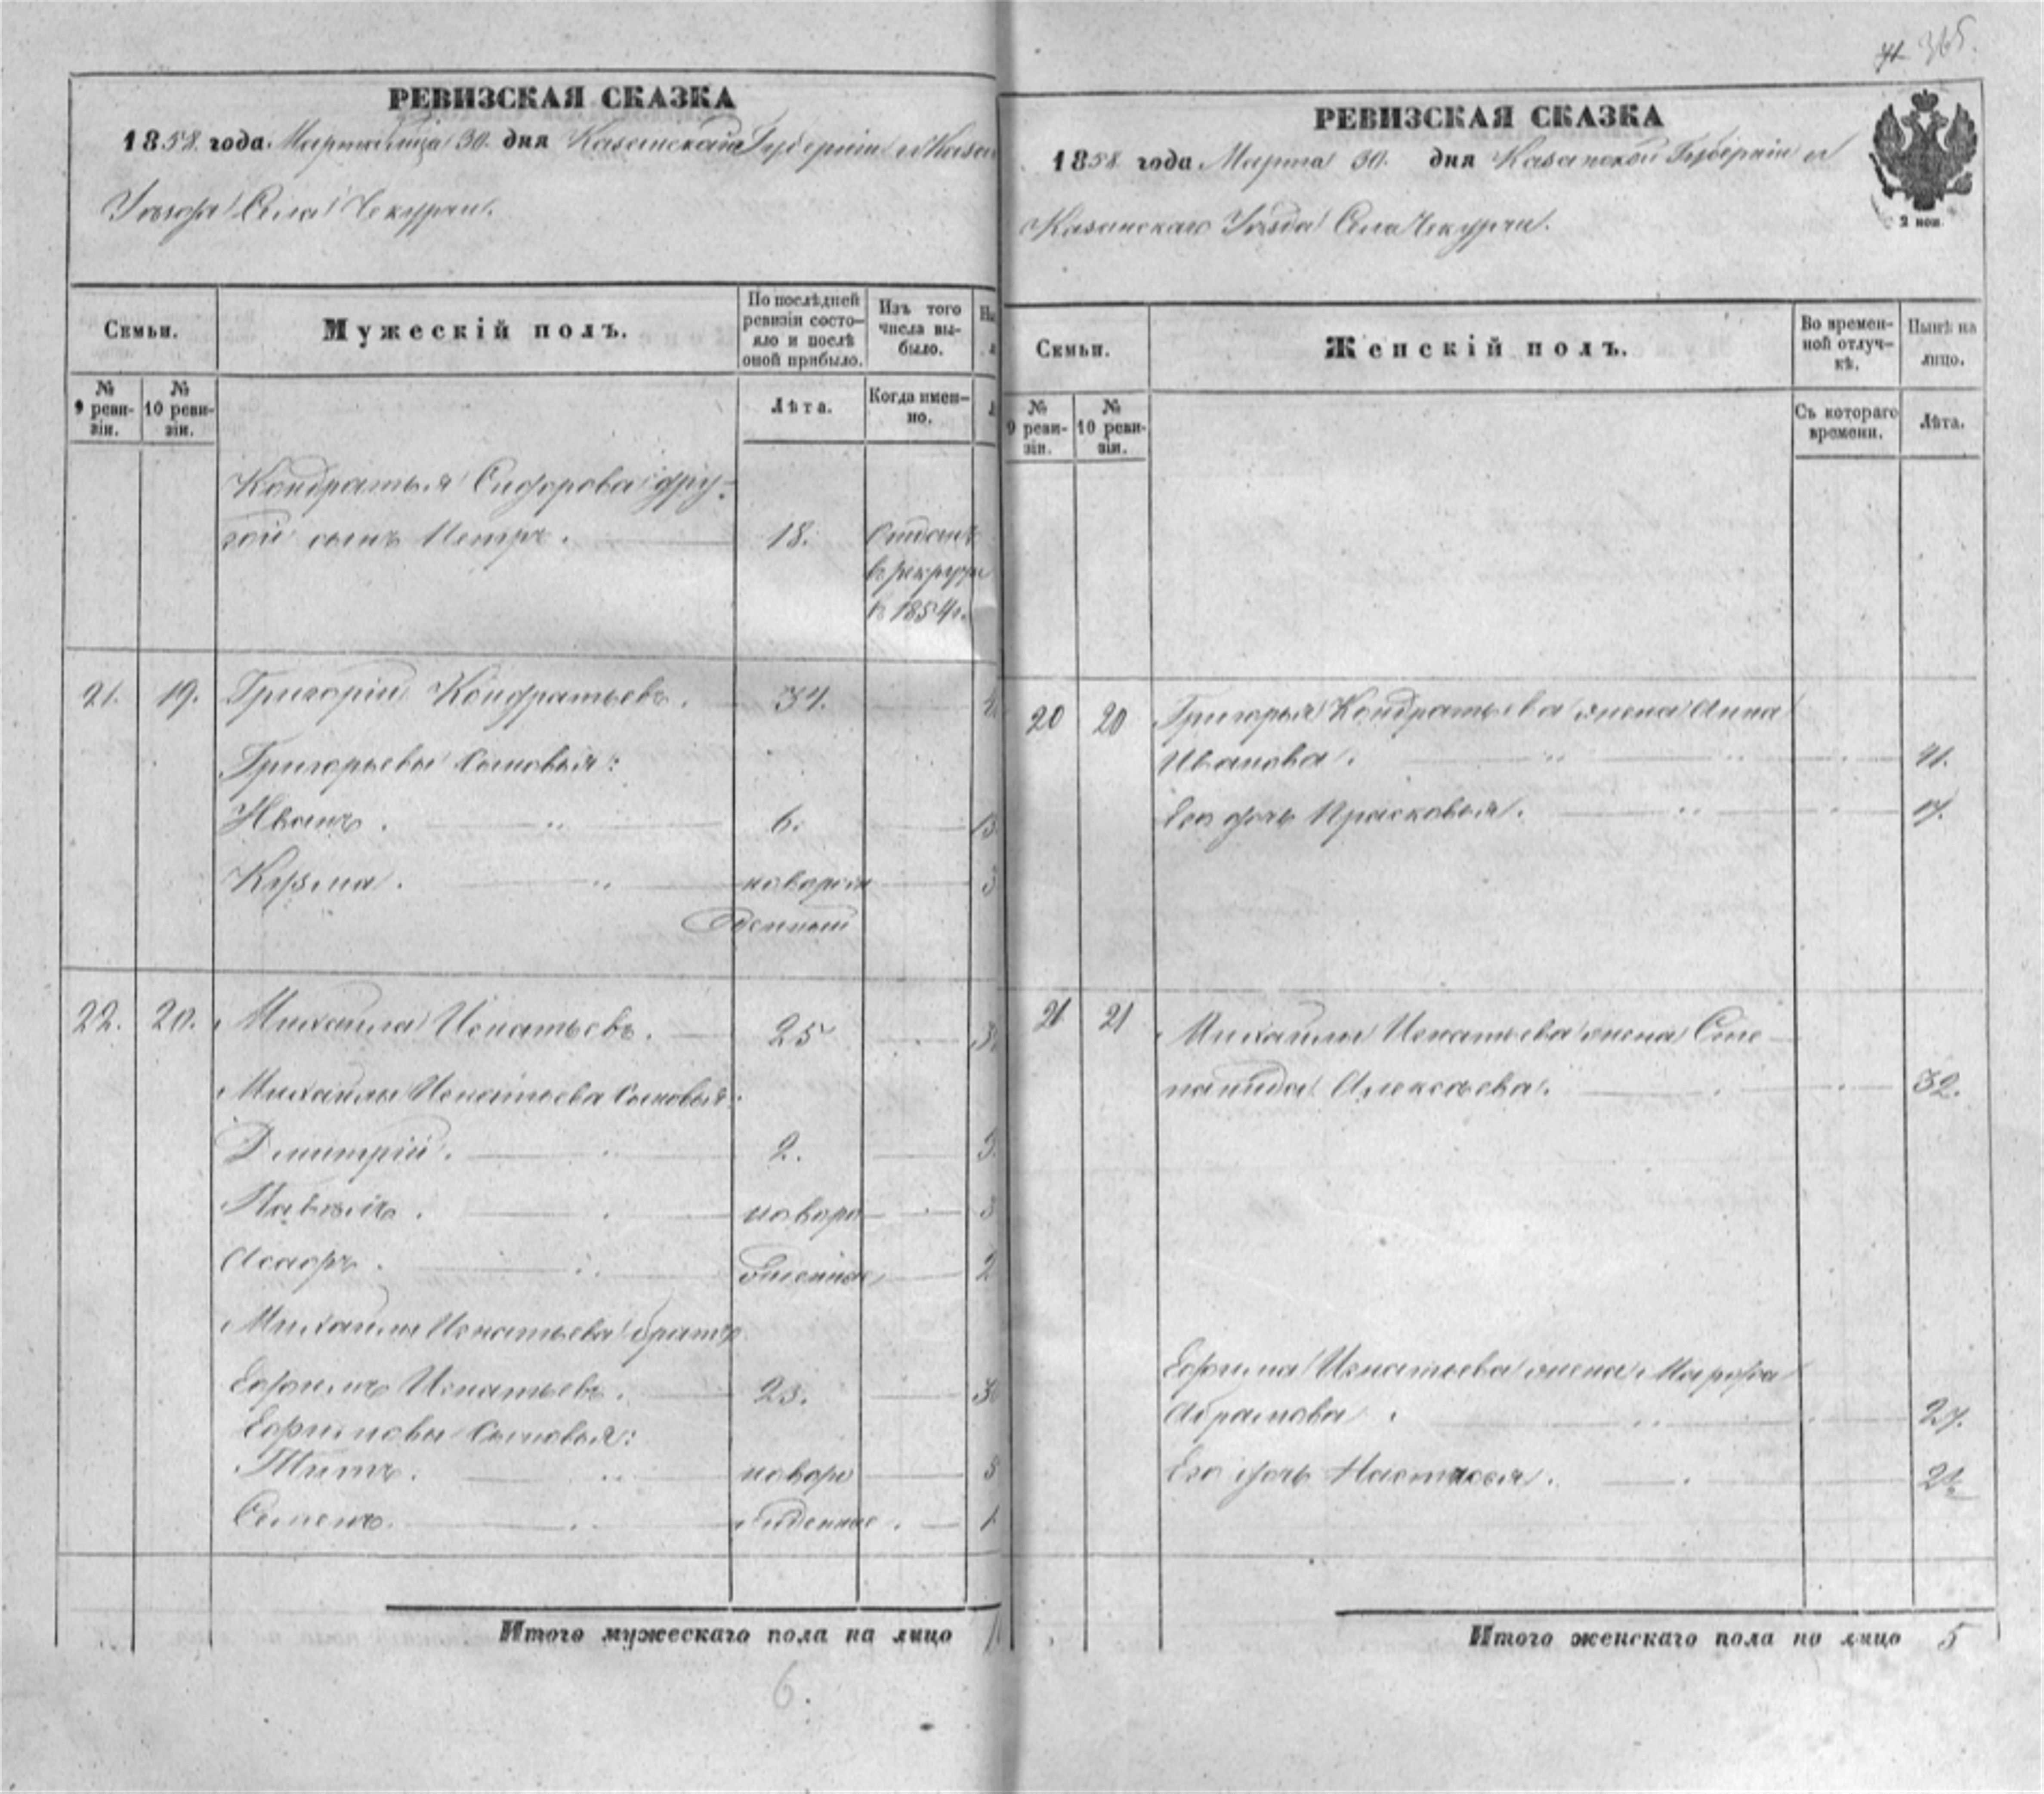 365.
РЕВИЗСКАЯ СКАЗКА
1858 года Марта месяца 30 дня Казанской Губернiи и Казан
Уѣзда Села Чекурчи.
Семьи.
Мужескiй полъ.
По послѣдней ревизiи состо-
яло и послѣ
оной прибыло.
Изъ того
числа вы-
было.
№
9 реви-
зiи.
№
10 реви-
зiи.
Лѣта.
Когда имен-
но.
Кондратья Сидорова дру-
гой сынъ Петръ. 18. отданъ
в рекруты
в 1854 г.
21. 19. Григорiй Кондратьевъ. 34.
Григорьевы сыновья:
Иванъ. 6. 15
Кузма. новорож 3
денный
22. 20. Михайла Игнатьевъ. 25
Михайлы Игнатьева сыновья:
Дмитрiй. 2.
новоро
жденные 2
Михайлы Игнатьева братъ
Ефимъ Игнатьевъ. 23.
Ефимовы сыновья:
Титъ. новоро
Семенъ. жденные 1
Итого мужескаго пола на лицо
6.
РЕВИЗСКАЯ СКАЗКА
1858 года Марта 30. дня Казанской Губернiи и
Казанскаго Уѣзда Села Чекурчи.
2 коп.
Семьи.
Женскiй полъ.
Во времен-
ной отлуч-
кѣ.
Нынѣ на
лицо.
№
9 реви-
зiи.
№
10 реви-
зiи.
Съ котораго
времени.
Лѣта.
20 20 Григорья Кондратьева жена Анна
Иванова. 41.
Его дочь Прасковья. 17.
21 21 Михайлы Игнатьева жена Сте
панида Алексѣева. 32.
Ефима Игнатьева жена Марфа
Абрамова. 27.
Его дочь Настасья.
Итого женскаго пола на лицо 5